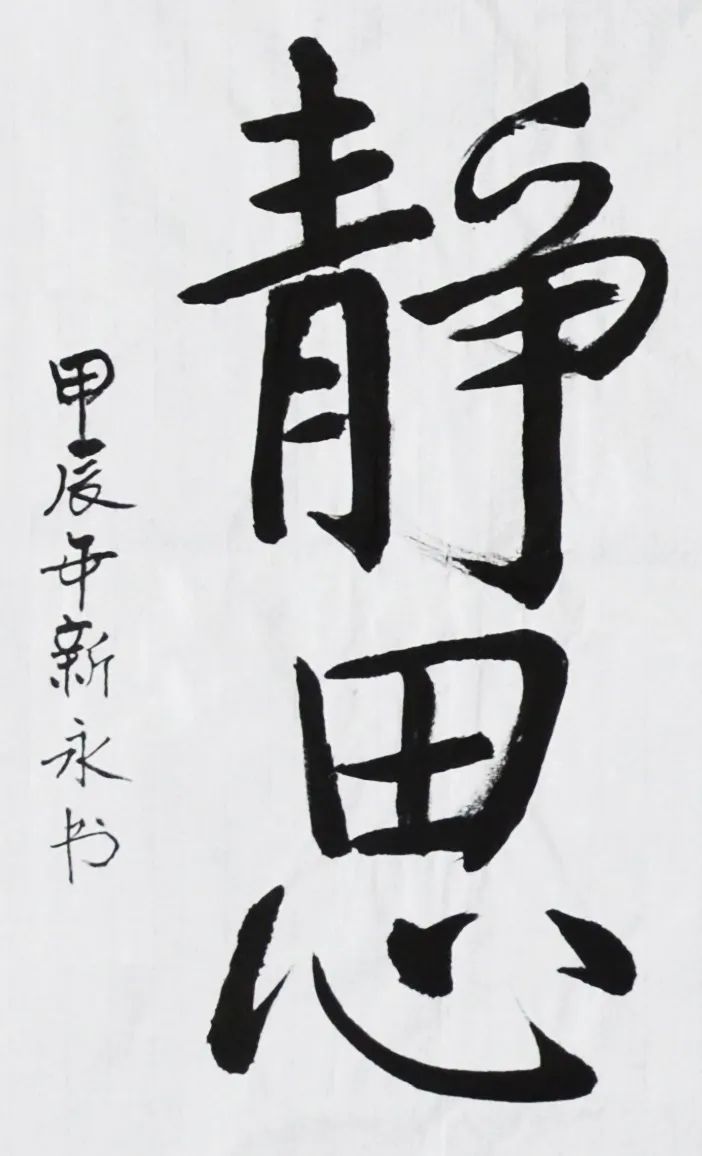 靜思
甲辰年新永书